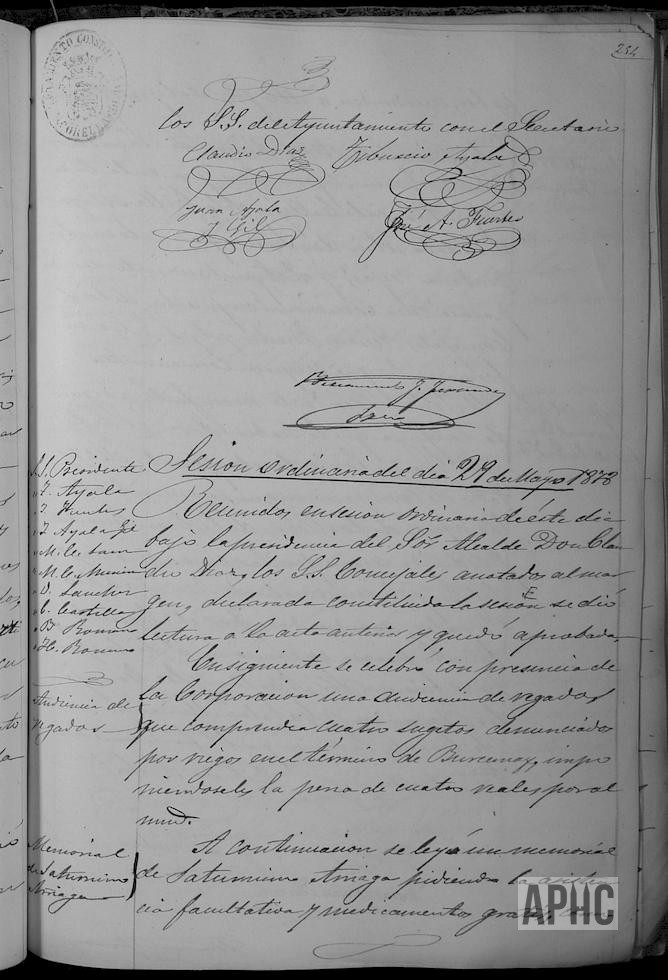 254
AYUNTAMIENTO CONSTIT
los SS. del Ayuntamiento con el Secretario
Claudio Diaz Tiburcio Ayala
Juan Ayala
y Gil
José A. Fuertes
Sesion ordinaria del dia 29 de Mayo 1878
S.S. Presidente
" T. Ayala
" J. Fuertes
" J. Ayala Gil
" M. C.
" M. C.
" D. Sanchez
" C. Castilla
" B. Romano
" H. Romano
Reunidos en sesion ordinaria de éste dia
bajo la presidencia del Sor. Alcalde Don Clau
dio Diaz, los S.S. Concejales anotados al mar
gen, declarada constituida la sesión E se dió
lectura a la acta anterior y quedó aprobada.
Audiencia de
regados
Ensiguiente se celebró con presencia de
la Corporacion una audiencia de regados
que comprendia cuatro sugetos denunciados
por riegos en el término de Burcemay, impo
niendoseles la pena de cuatro reales por al
mud.
Memorial
de Saturnino
Arriaga
A continuacion se leyó un memorial
de Saturnino Arriaga pidiendo la asisten
cia facultativa y medicamentos gratis, como
APHC